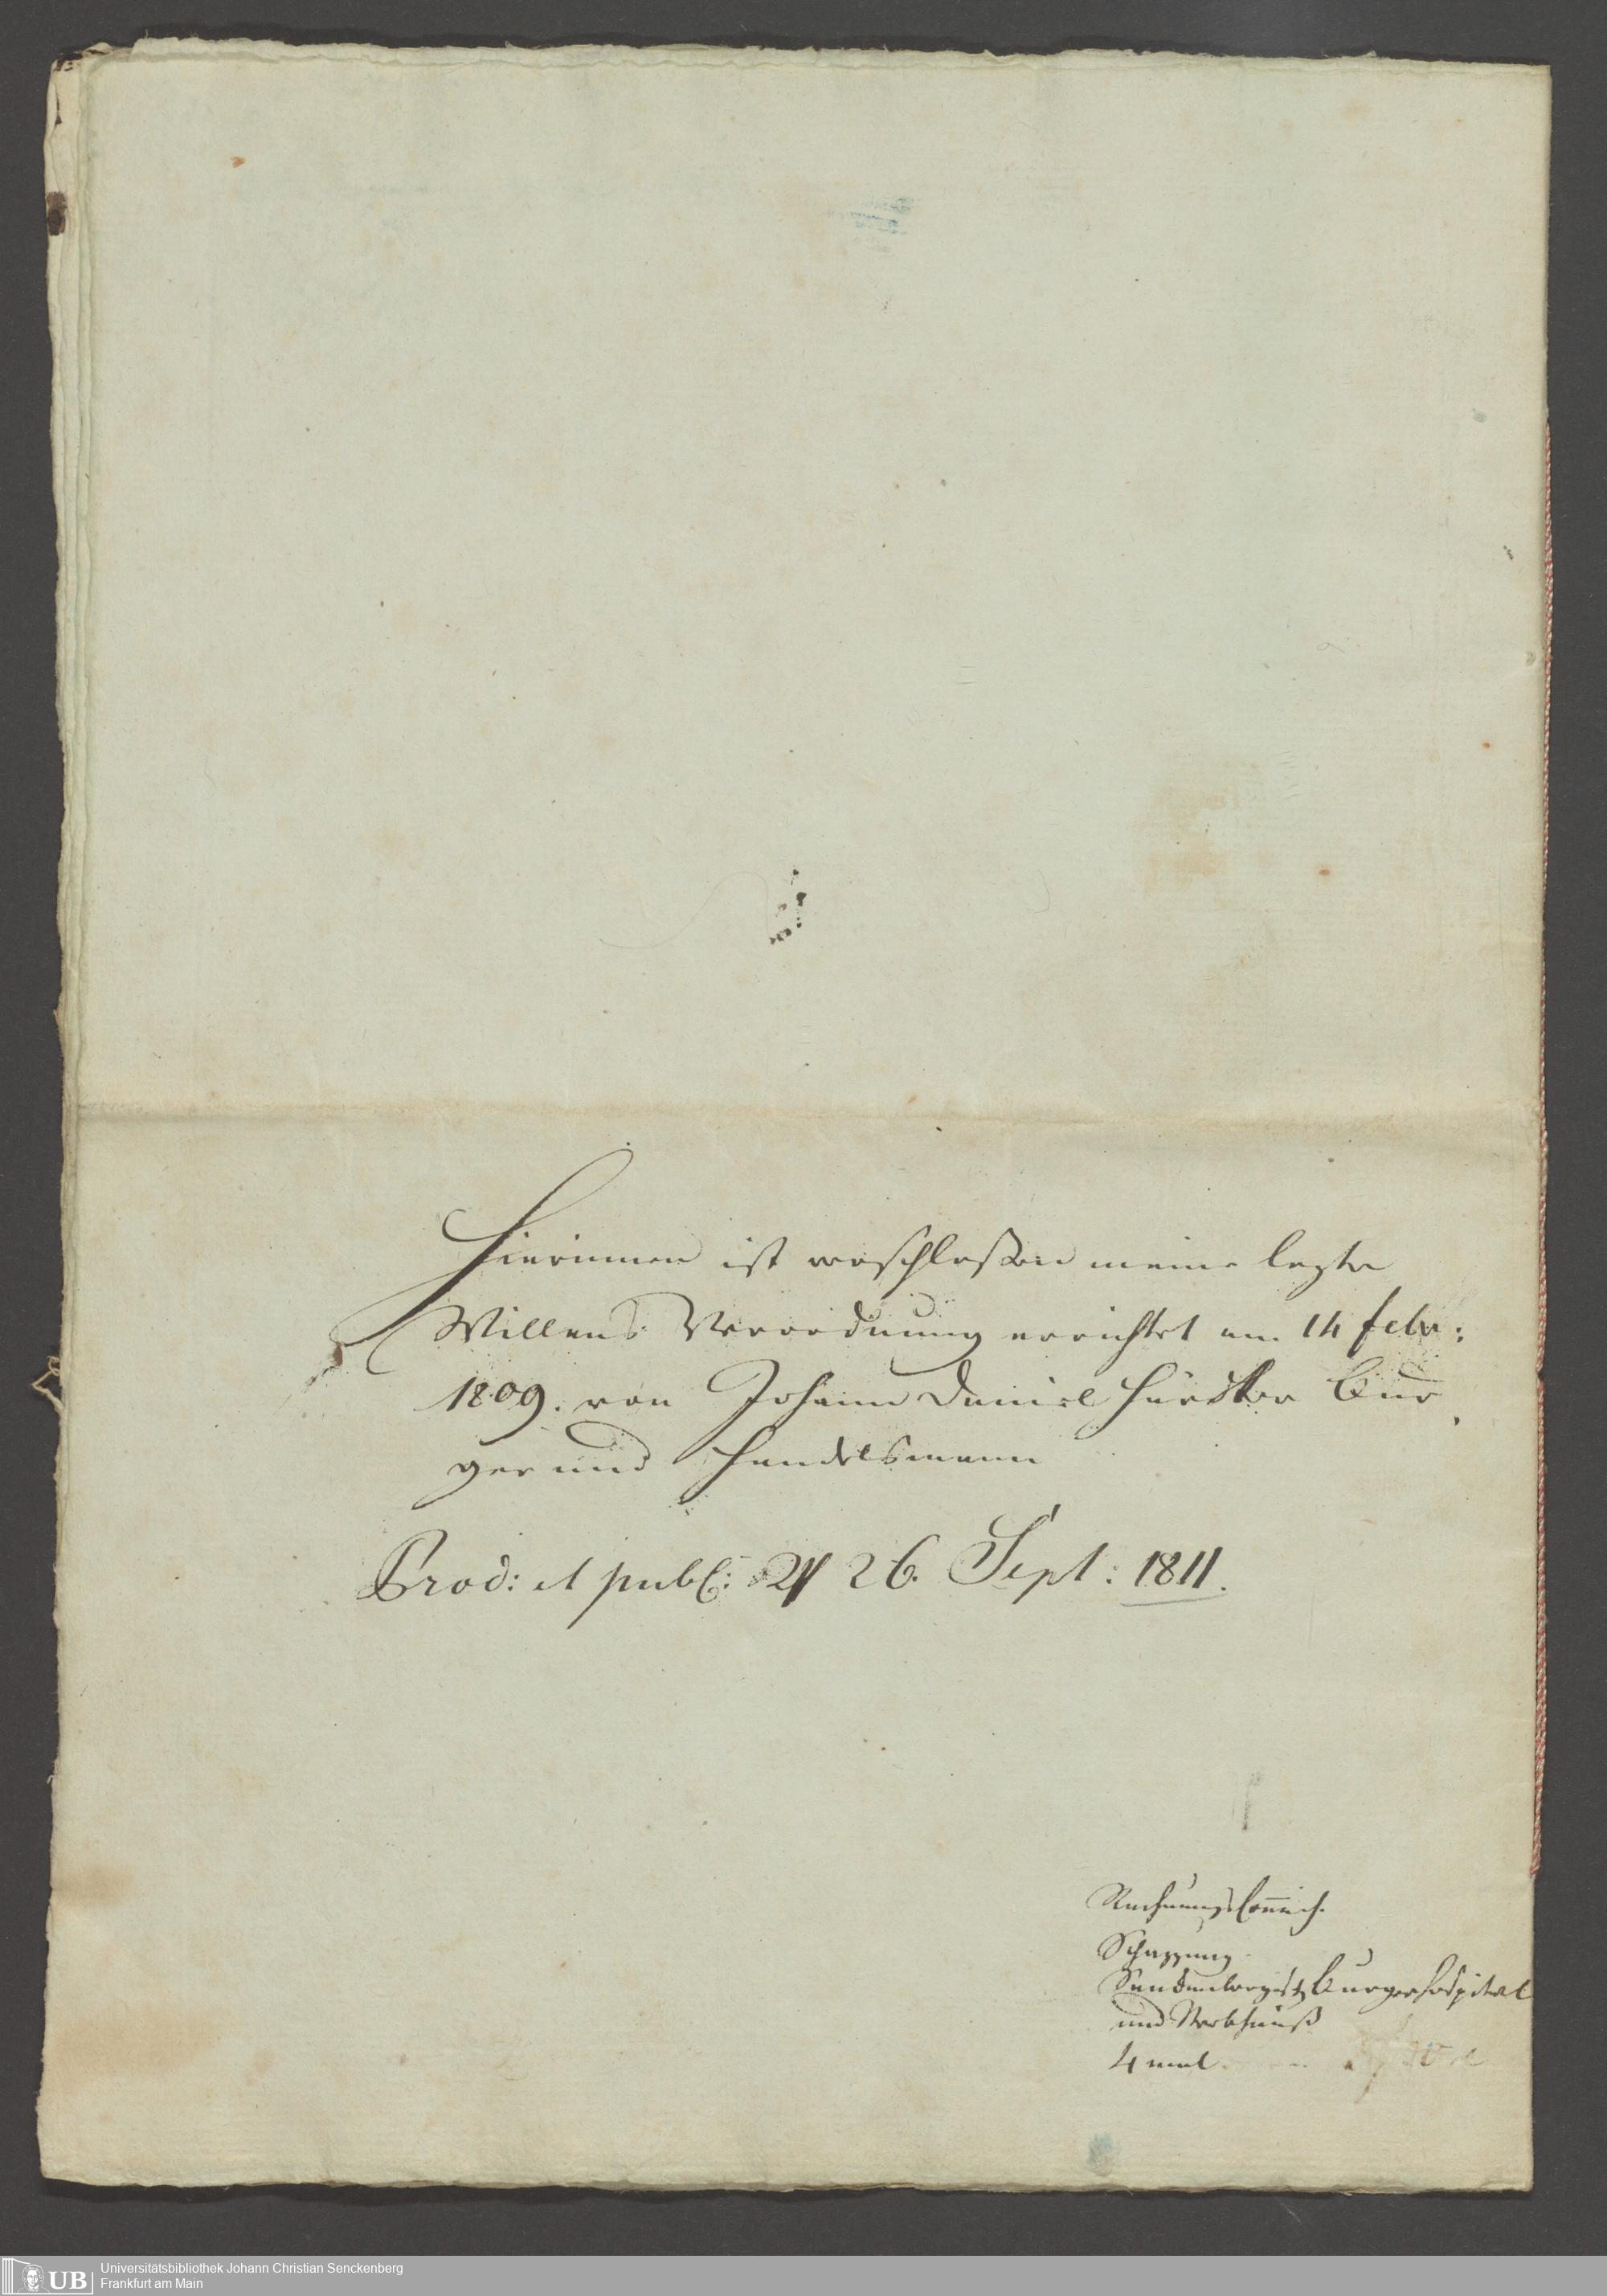 Hierinnen ist verschloßen meine lezte
Willens Verordnung errichtet am 14 febr:
1809. von Johann Daniel Bur
ger und Handelsmann
Prod: et publ: 26. Sept: 1811.
Rechnungs Commiss.
Schazzung
Senckenbergisch Burgerhospital
und Werkhauß
4 mal
UB
Universitätsbibliothek Johann Christian Senckenberg
Frankfurt am Main